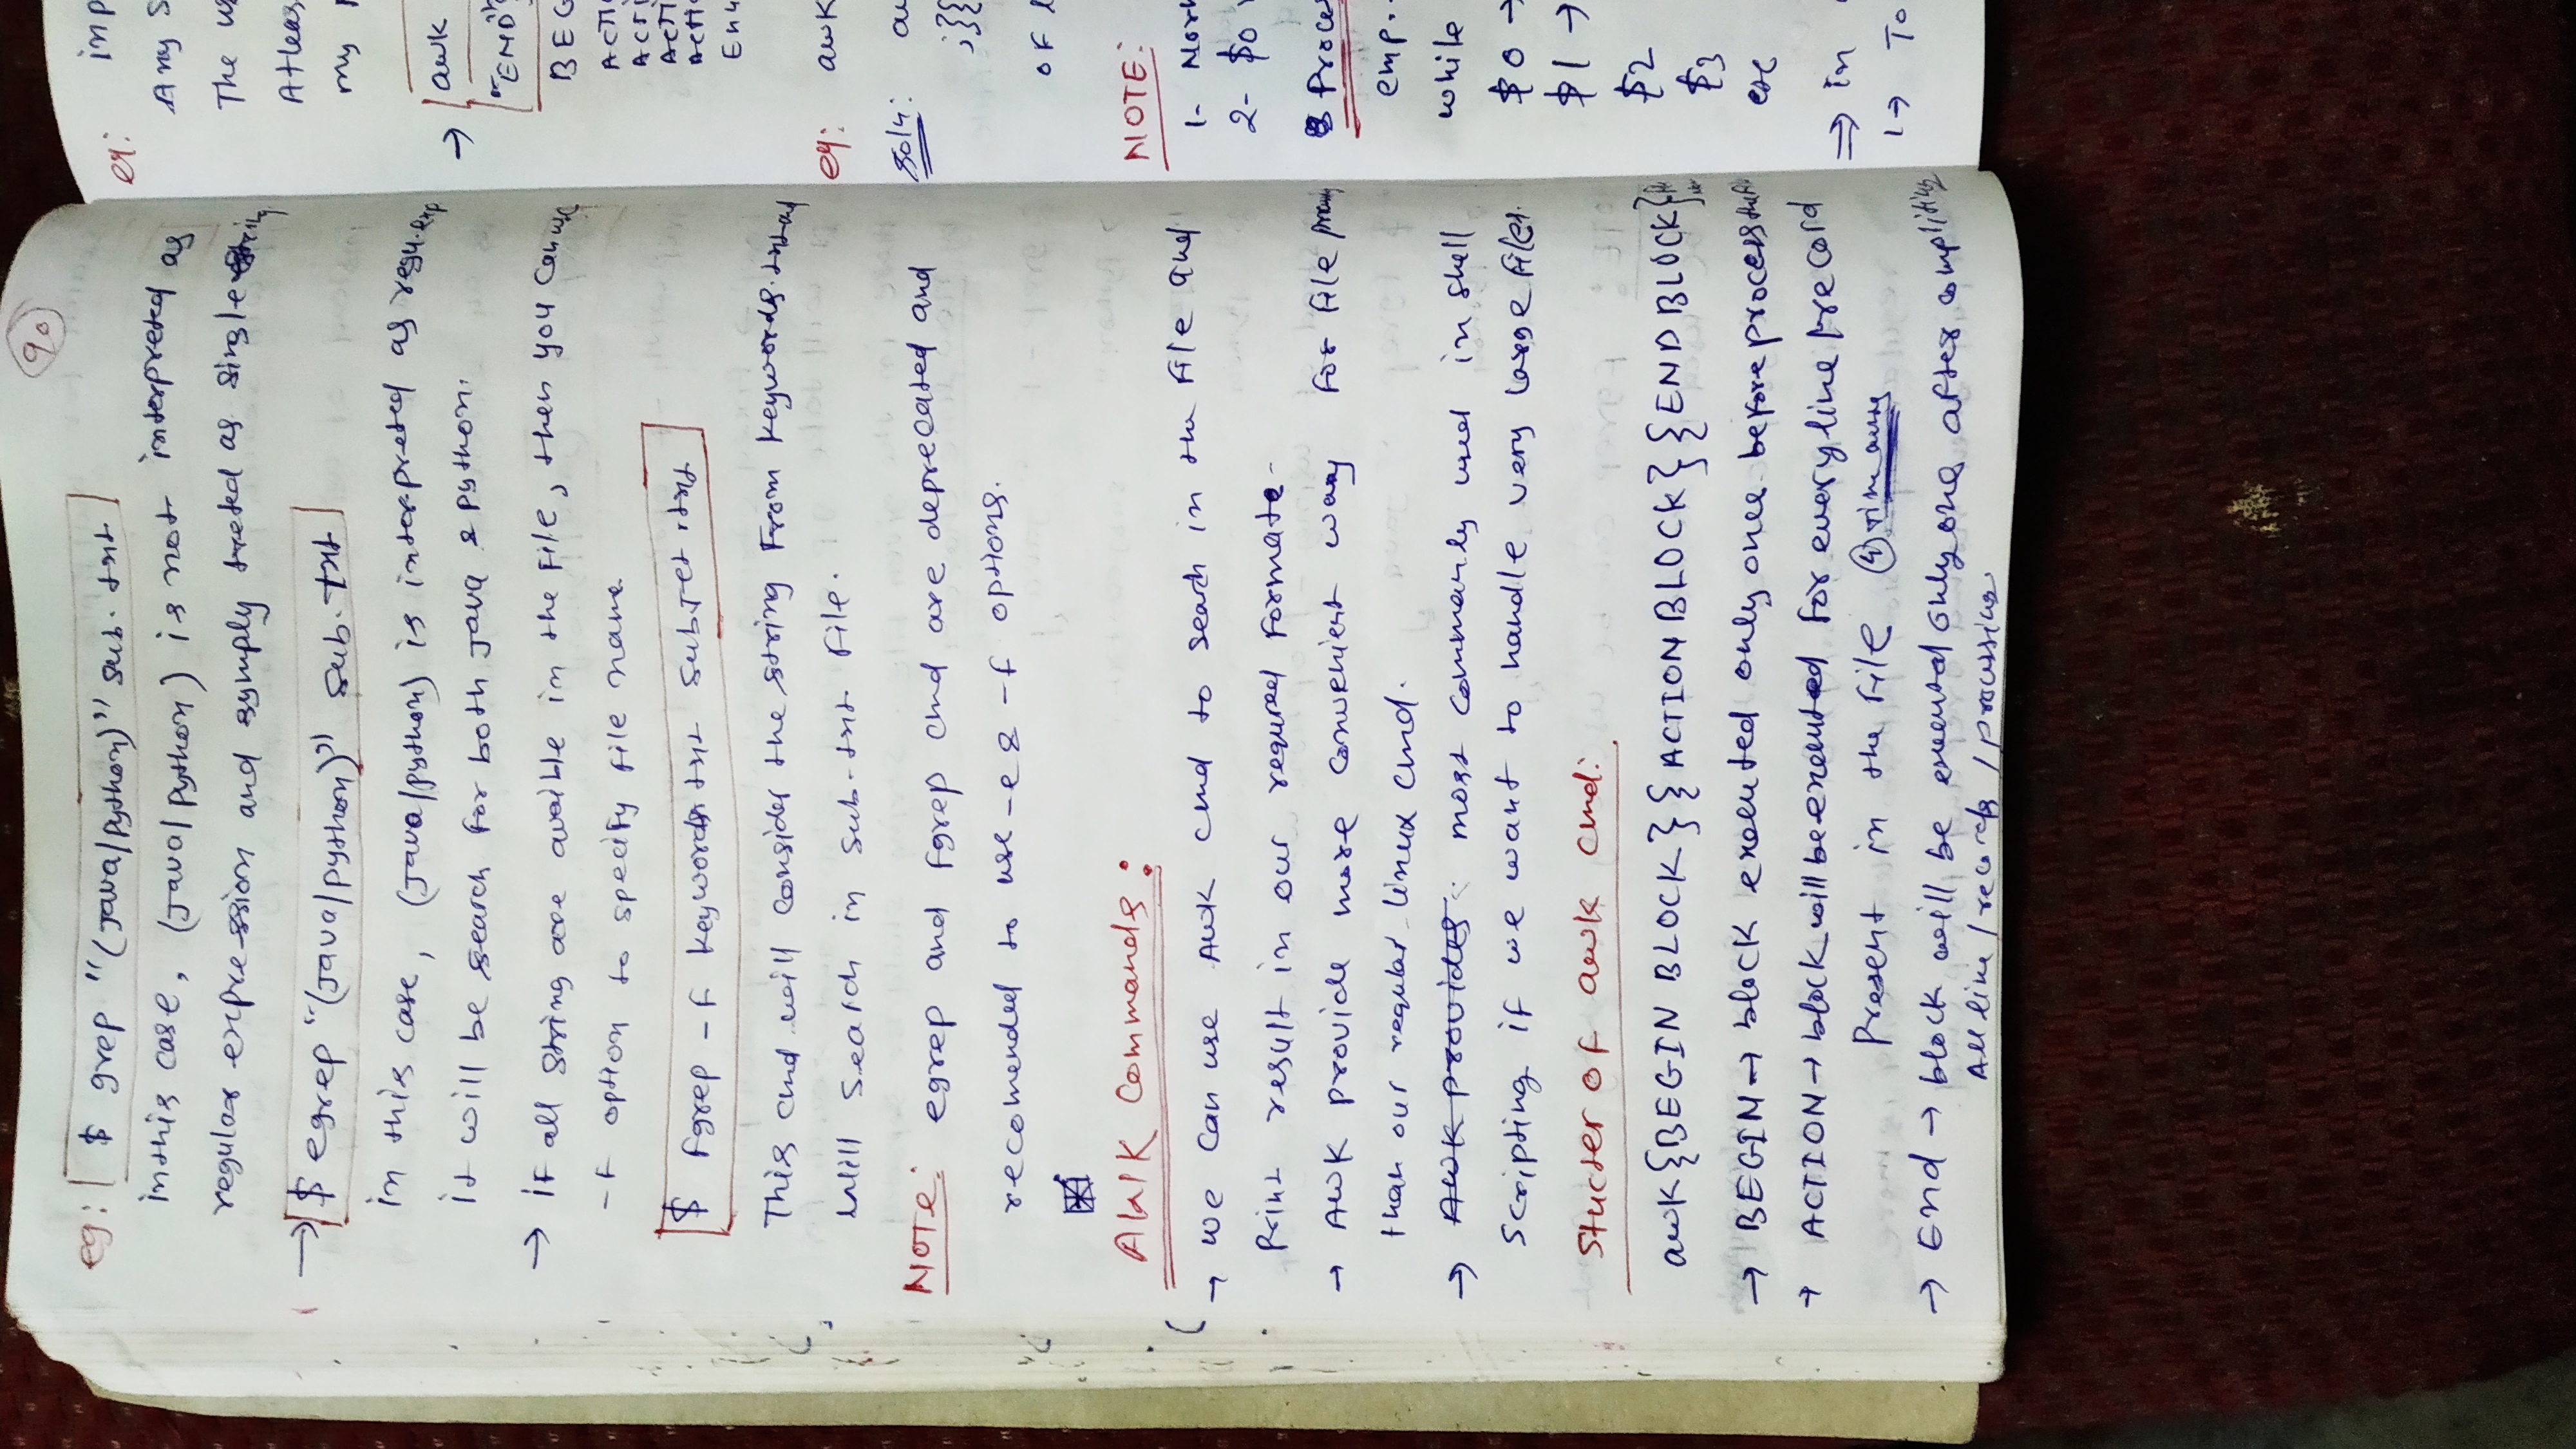 90
eg: $ grep "(Java/python)" sub.txt
inthis case, (Java/python) is not interpreted as
regular expression and symply treted as single string
→ $ egrep "(Java/python)" sub.txt
in this case, (Java/python) is interpreted as regu.exp
it will be search for both Java & python.
→ if all string are avaible in the file, then you can use
-f option to specify file name
$ fgrep -f keywords.txt subject.txt
This cmd will consider the string from keywords.txt and
will search in sub.txt file.
NOTE: egrep and fgrep cmd are deprecated and
recomended to use -e & -f options.
AWK Commands:
→ we can use AWK cmd to search in the file and
Print result in our required formate-
→ AWK provide more convenient way for file
than our regular linux cmd.
→ AWK provides most commanly used in shell
scripting if we want to handle very large files.
Stucter of awk cmd:
awk{BEGIN BLOCK}{ACTION BLOCK}{END BLOCK}
→ BEGIN → block executed only once before process the
→ ACTION → block will be executed for every line/record
Present in the file ④
→ End → block will be executed only one after compliting
All line / records / processing
eg: inp
Any S
The us
Atleas
my
→ awk
"END"
BEG
ACTI
ACTI
ACTI
ACTI
eg: awk
soln: au
;}{
of l
NOTE:
1-
2- $0
Proces
emp.
while
$0 →
$1 →
$2
$3
etc
⇒ in
1→ To